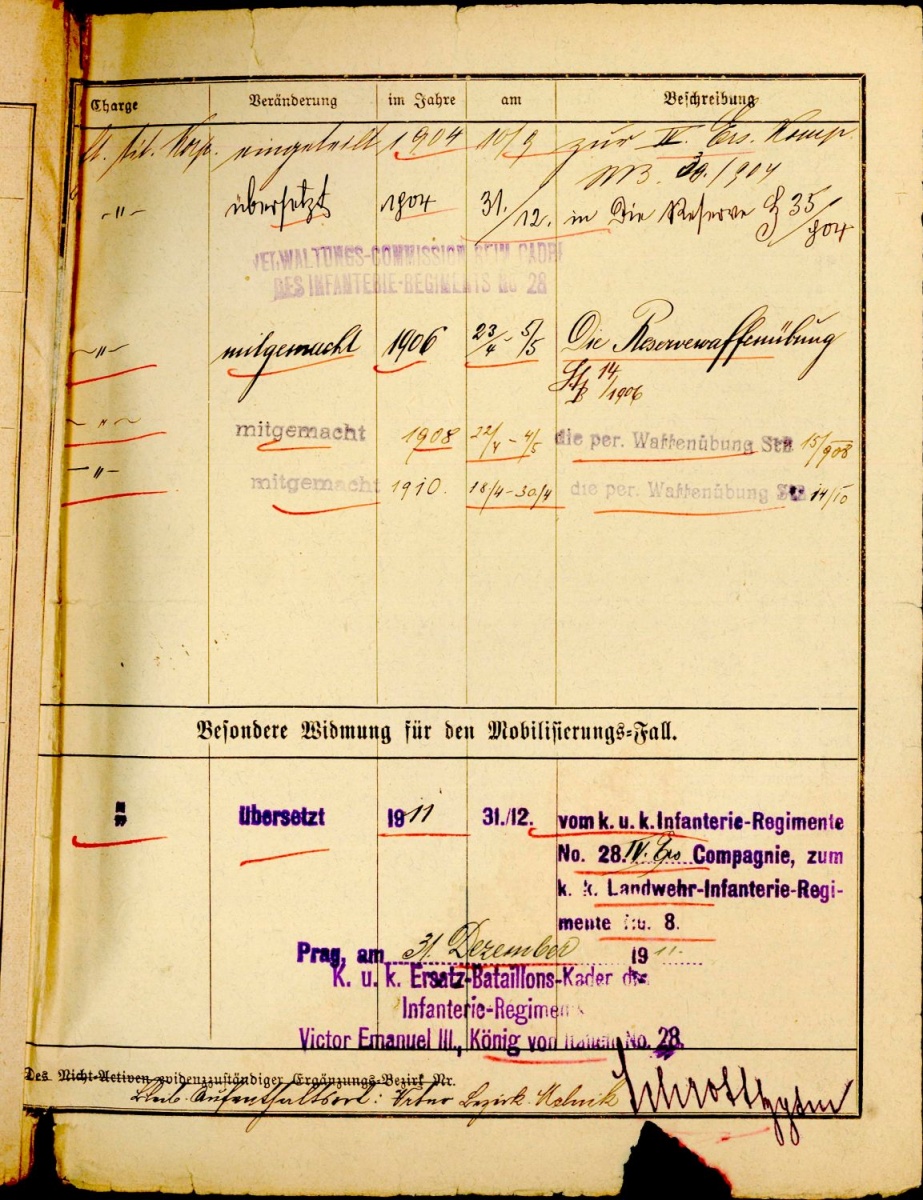 Charge Veränderung im Jahre am Beschreibung
eingeteilt 1904 10/9 zur IV. Ers. Komp
/904
-"- übersetzt 1904 31./12. in Die Reserve 35/904
VERWALTUNGS-COMMISSION BEIM CADRE
DES INFANTERIE-REGIMENTS No 28
-"- mitgemacht 1906 23/4 5/5 Die Reservewaffenübung
14/1906
-"- mitgemacht 1908 22/4 - 4/5 die per. Waffenübung StB 15/908
-"- mitgemacht 1910. 18/4-30/4 die per. Waffenübung StB 14/10
Besondere Widmung für den Mobilisierungs-Fall.
übersetzt 1911 31./12. vom k. u. k. Infanterie-Regimente
No. 28 IV. Ers Compagnie, zum
k. k. Landwehr-Infanterie-Regi-
mente No. 8.
Prag, am 31 Dezember 1911.
K. u. k. Ersatz-Bataillons-Kader des
Infanterie-Regiments
Victor Emanuel III., König von Italien No. 28.
Des Nicht-Activen evidenzzuständiger Ergänzungs-Bezirk Nr.
Aufenthaltsort: Bezirk Melnik